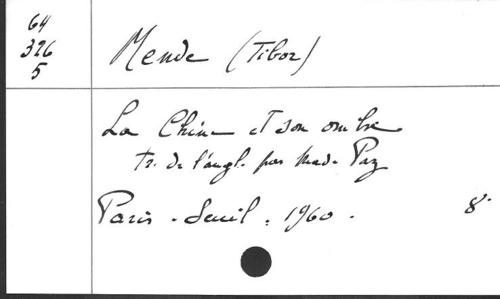 64
326
5
Mende (Tibor)
La Chine et son ombre
tr. de l'angl. par Made Paz
Paris - Seuil, 1960.
8°